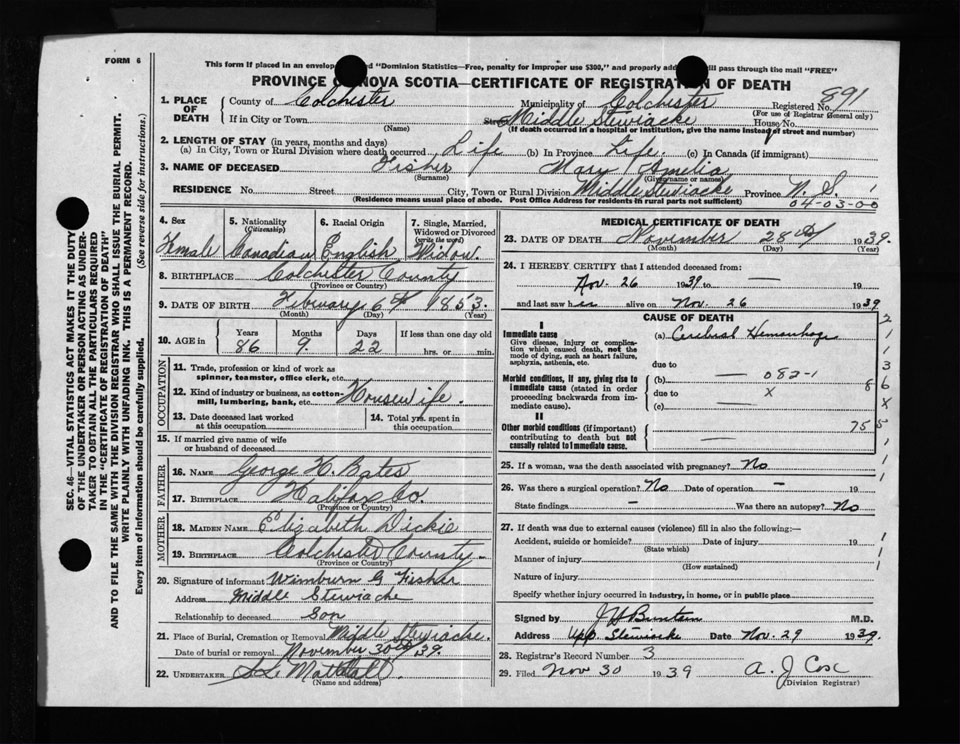 FORM 6
This form if placed in an envelope "Dominion Statistics—Free, penalty for improper use $300," and properly will pass through the mail "FREE"
PROVINCE NOVA SCOTIA—CERTIFICATE OF REGISTRATION OF DEATH
1. PLACE OF DEATH
County of Colchester Municipality of Colchester Registered No. 891
(For use of Registrar General only)
If in City or Town Street Middle Stewiacke House No.
(Name) (If death occurred in a hospital or institution, give the name instead of street and number)
2. LENGTH OF STAY (in years, months and days)
(a) In City, Town or Rural Division where death occurred Life (b) In Province Life. (c) In Canada (if immigrant)
3. NAME OF DECEASED Fisher Mary Amelia
(Surname) (Given name or names)
RESIDENCE No. Street City, Town or Rural Division Middle Stewiacke Province N.S. 1
(Residence means usual place of abode. Post Office Address for residents in rural parts not sufficient) 04-03-00
4. Sex 5. Nationality (Citizenship) 6. Racial Origin 7. Single, Married, Widowed or Divorced (write the word)
Female Canadian English Widow.
8. BIRTHPLACE Colchester County
(Province or Country)
9. DATE OF BIRTH February 6th 1853.
(Month) (Day) (Year)
10. AGE in Years Months Days If less than one day old
86 9. 22 hrs. or min.
OCCUPATION
11. Trade, profession or kind of work as spinner, teamster, office clerk, etc.
12. Kind of industry or business, as cotton-mill, lumbering, bank, etc. Housewife.
13. Date deceased last worked at this occupation 14. Total yrs. spent in this occupation
15. If married give name of wife or husband of deceased
FATHER
16. NAME George H. Bates
17. BIRTHPLACE Halifax Co.
(Province or Country)
MOTHER
18. MAIDEN NAME Elizabeth Dickie
19. BIRTHPLACE Colchester County.
(Province or Country)
20. Signature of informant Wimburn G Fisher
Address Middle Stewiacke
Relationship to deceased Son
21. Place of Burial, Cremation or Removal Middle Stewiacke.
Date of burial or removal November 30th 39.
22. UNDERTAKER
(Name and address)
MEDICAL CERTIFICATE OF DEATH
23. DATE OF DEATH November 28th 1939.
(Month) (Day) (Year)
24. I HEREBY CERTIFY that I attended deceased from —
Nov. 26 1939 to — 19
and last saw h alive on Nov. 26 1939
CAUSE OF DEATH
I
Immediate cause
Give disease, injury or complication which caused death, not the mode of dying, such as heart failure, asphyxia, asthenia, etc.
(a) Cerebral Hemorrhage
due to
Morbid conditions, if any, giving rise to immediate cause (stated in order proceeding backwards from immediate cause).
(b) — 082-1
due to X
(c) —
II
Other morbid conditions (if important) contributing to death but not causally related to immediate cause.
25. If a woman, was the death associated with pregnancy? No
26. Was there a surgical operation? No Date of operation — 19
State findings — Was there an autopsy? No
27. If death was due to external causes (violence) fill in also the following:—
Accident, suicide or homicide? Date of injury 19
(State which)
Manner of injury
(How sustained)
Nature of injury
Specify whether injury occurred in industry, in home, or in public place
Signed by M.D.
Address Upp. Stewiacke Date Nov. 29 1939.
28. Registrar's Record Number 3
29. Filed Nov 30 1939 A. J Cox
(Division Registrar)
SEC. 46—VITAL STATISTICS ACT MAKES IT THE DUTY OF THE UNDERTAKER OR PERSON ACTING AS UNDERTAKER TO OBTAIN ALL THE PARTICULARS REQUIRED IN THE "CERTIFICATE OF REGISTRATION OF DEATH" AND TO FILE THE SAME WITH THE DIVISION REGISTRAR WHO SHALL ISSUE THE BURIAL PERMIT.
WRITE PLAINLY WITH UNFADING INK. THIS IS A PERMANENT RECORD.
Every item of information should be carefully supplied. (See reverse side for instructions.)